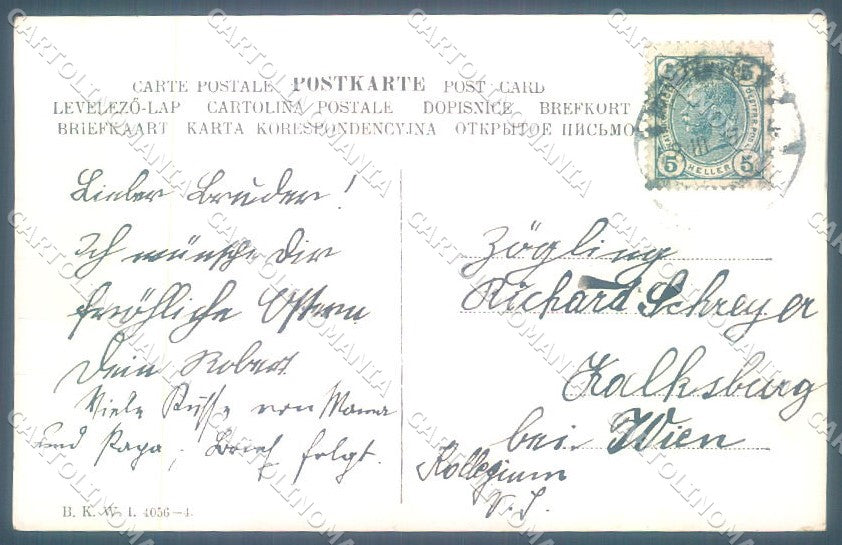 CARTE POSTALE POSTKARTE POST CARD
LEVELEZŐ-LAP CARTOLINA POSTALE DOPISNICE BREFKORT
BRIEFKAART KARTA KORESPONDENCYJNA ОТКРЫТОЕ ПИСЬМО
5 5
5 HELLER 5
Lieber Bruder!
Ich wünsche Dir
fröhliche Ostern
Dein Robert
Viele Küsse von Mama
und Papa, Brief folgt.
Zögling
Richard Schreyer
Kalksburg
bei Wien
Kollegium
B. K. W. I. 4056-4.
CARTOLINOMANIA